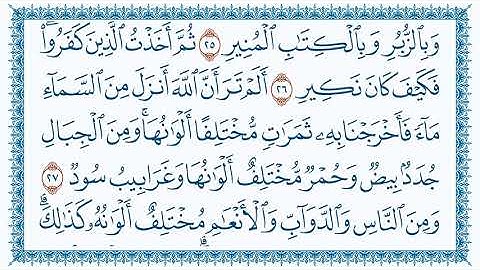 وَبِالزُّبُرِ وَبِالْكِتَٰبِ الْمُنِيرِ ٢٥ ثُمَّ أَخَذْتُ الَّذِينَ كَفَرُوا۟ ۖ
فَكَيْفَ كَانَ نَكِيرِ ٢٦ أَلَمْ تَرَ أَنَّ اللَّهَ أَنزَلَ مِنَ السَّمَآءِ
مَآءً فَأَخْرَجْنَا بِهِۦ ثَمَرَٰتٍ مُّخْتَلِفًا أَلْوَٰنُهَا ۚ وَمِنَ الْجِبَالِ
جُدَدٌۢ بِيضٌ وَحُمْرٌ مُّخْتَلِفٌ أَلْوَٰنُهَا وَغَرَابِيبُ سُودٌ ٢٧
وَمِنَ النَّاسِ وَالدَّوَآبِّ وَالْأَنْعَٰمِ مُخْتَلِفٌ أَلْوَٰنُهُۥ كَذَٰلِكَ ۗ